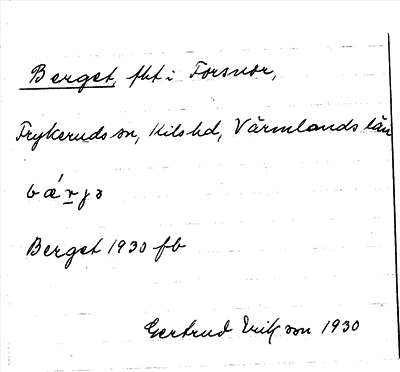 Berget, fht i Forsnor,
Frykeruds sn, Kils hd, Värmlands län
bǽrjə
Berget 1930 fb
Gertrud Erikson 1930